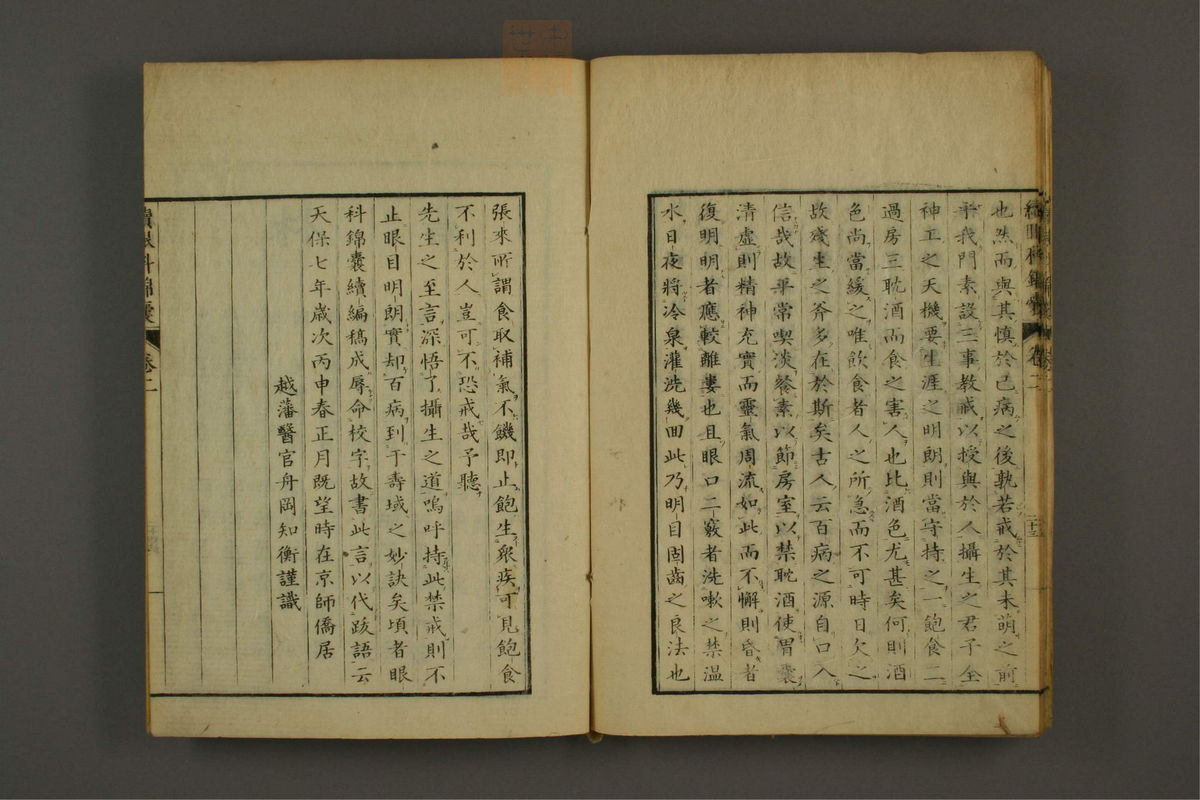 也然而與其慎於已病之後孰若戒於其未萌之前
乎我門素設三事教戒以授與於人攝生之君子全
神工之天機要生涯之明朗則當守持之一飽食二
過房三耽酒而食之害人也比酒色尤甚矣何則酒
色尚當緩之唯飲食者人之所急而不可時日欠之
故殘生之斧多在於斯矣古人云百病之源自口入
信哉故平常喫淡餐素以節房室以禁耽酒使胃囊
清虛則精神充實而靈氣周流如此而不懈則昏者
復明明者應較離婁也且眼口二竅者洗嗽之禁溫
水日夜將冷泉灌洗幾回此乃明目固齒之良法也
張來所謂食取補氣不饑即止飽生衆疾可見飽食
不利於人豈可不恐戒哉予聽
先生之至言深悟了攝生之道嗚呼持此禁戒則不
止眼目明朗實却百病到于壽域之妙訣矣頃者眼
科錦囊續編稿成辱命校字故書此言以代跋語云
天保七年歲次丙申春正月既望時在京師僑居
越藩醫官舟岡知衡謹識
續眼科錦囊 卷二